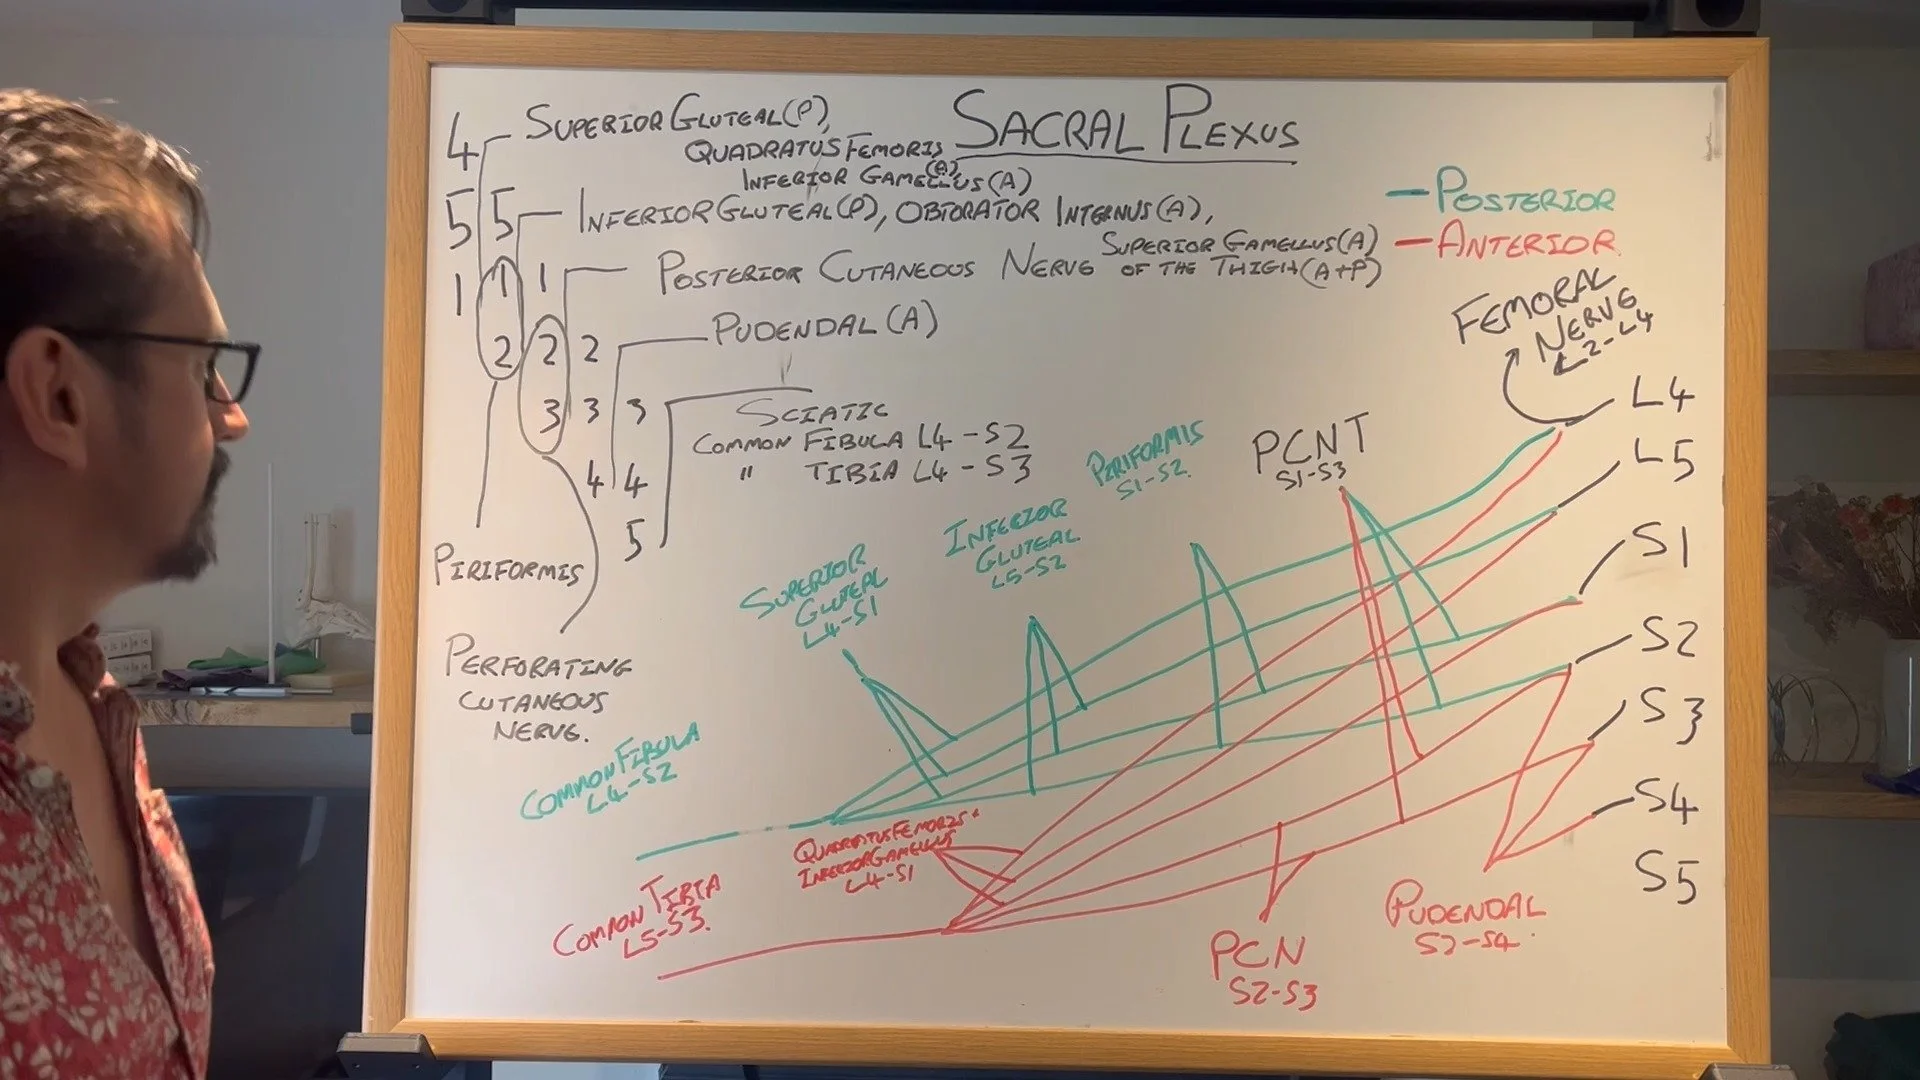 SACRAL PLEXUS
4 SUPERIOR GLUTEAL (P),
QUADRATUS FEMORIS (A),
INFERIOR GAMELLUS (A)
5 5 INFERIOR GLUTEAL (P), OBTORATOR INTERNUS (A),
SUPERIOR GAMELLUS (A)
1 1 1 POSTERIOR CUTANEOUS NERVE OF THE THIGH (A+P)
PUDENDAL (A)
2 2 2
3 3 3
SCIATIC
COMMON FIBULA L4-S2
" TIBIA L4-S3
4 4
5
PIRIFORMIS
PERFORATING
CUTANEOUS
NERVE.
POSTERIOR
ANTERIOR
FEMORAL
NERVE
L2-L4
L4
L5
S1
S2
S3
S4
S5
PCNT
S1-S3
PIRIFORMIS
S1-S2
INFERIOR
GLUTEAL
L5-S2
SUPERIOR
GLUTEAL
L4-S1
COMMON FIBULA
L4-S2
QUADRATUS FEMORIS
INFERIOR GAMELLUS
L4-S1
COMMON TIBIA
L5-S3.
PCN
S2-S3
PUDENDAL
S2-S4.